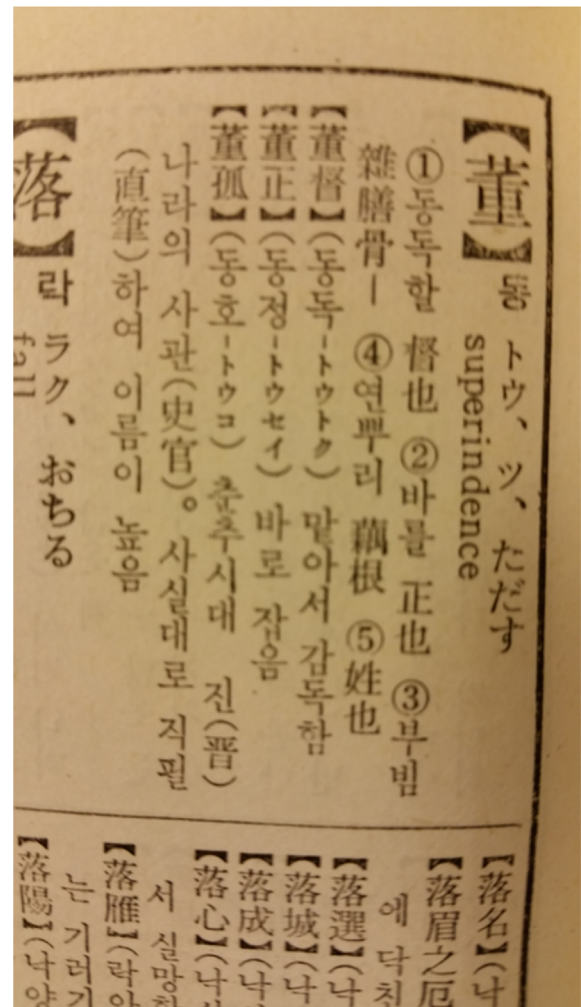 【董】동 トウ、ツ、ただす
superindence
①동독할 督也 ②바를 正也 ③부빔
雜膳骨ー ④연뿌리 藕根 ⑤姓也
【董督】(동독-トウトク) 맡아서 감독함
【董正】(동정-トウセイ) 바로 잡음
【董孤】(동호-トウコ) 춘추시대 진(晋)
나라의 사관(史官)。 사실대로 직필
(直筆)하여 이름이 높음
【落】락 ラク、おちる
fall
【落名】(낙
【落眉之厄
에 닥친
【落選】(낙
【落城】(낙
【落成】(낙
【落心】(낙
서 실망
【落雁】(락안
는 기러기
【落陽】(낙양